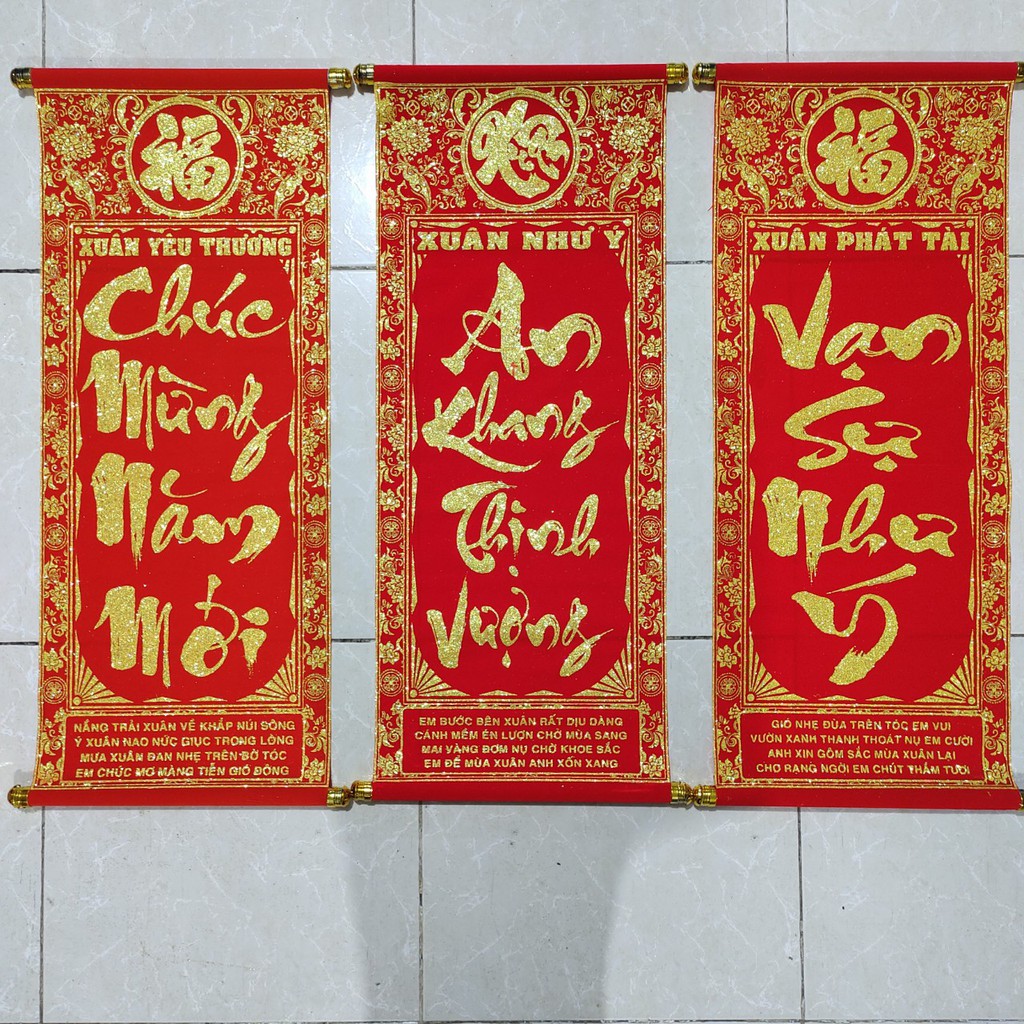 福
XUÂN YÊU THƯƠNG
Chúc
Mừng
Năm
Mới
NẮNG TRẢI XUÂN VỀ KHẮP NÚI SÔNG
Ý XUÂN NAO NỨC GIỤC TRONG LÒNG
MƯA XUÂN ĐAN NHẸ TRÊN BỜ TÓC
EM CHÚC MƠ MÀNG TIỄN GIÓ ĐÔNG
XUÂN NHƯ Ý
An
Khang
Thịnh
Vượng
EM BƯỚC BÊN XUÂN RẤT DỊU DÀNG
CÁNH MỀM ÉN LƯỢN CHỞ MÙA SANG
MAI VÀNG ĐƠM NỤ CHỜ KHOE SẮC
EM ĐỂ MÙA XUÂN ANH XỐN XANG
福
XUÂN PHÁT TÀI
Vạn
Sự
Như
Ý
GIÓ NHẸ ĐÙA TRÊN TÓC EM VUI
VƯỜN XANH THANH THOÁT NỤ EM CƯỜI
ANH XIN GÔM SẮC MÙA XUÂN LẠI
CHO RẠNG NGỜI EM CHÚT THẮM TƯƠI